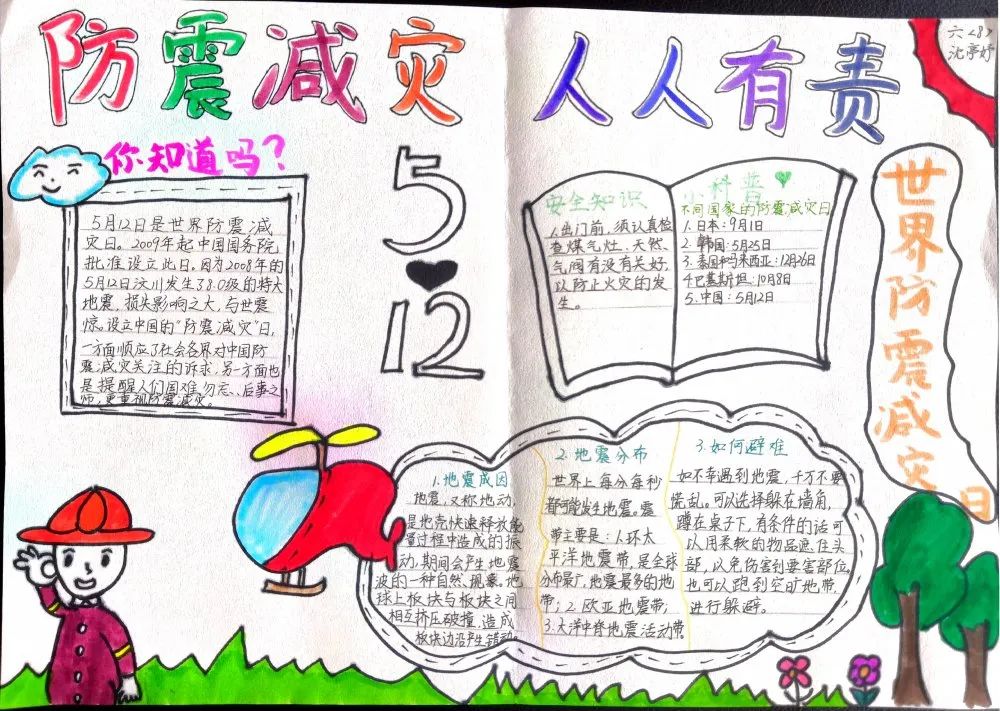 防震减灾 人人有责
六<8>
沈亭妤
你知道吗?
5月12日是世界防震减
灾日。2009年起中国国务院
批准设立此日。因为2008年的
5月12日汶川发生了8.0级的特大
地震,损失影响之大,与世震
惊。设立中国的“防震减灾”日,
一方面顺应了社会各界对中国防
震减灾关注的诉求,另一方面也
是提醒人们国难勿忘、后事之
师,更重视防震减灾。
5
12
安全知识
1.出门前,须认真检
查煤气灶、天然
气阀有没有关好,
以防止火灾的发
生。
科普
不同国家的防震减灾日
1.日本:9月1日
2.韩国:5月25日
3.泰国和马来西亚:12月26日
4.巴基斯坦:10月8日
5.中国:5月12日
世界防震减灾日
1.地震成因
地震,又称地动,
是地壳快速释放能
量过程中造成的振
动,期间会产生地震
波的一种自然现象。地
球上板块与板块之间
相互挤压碰撞,造成
板块边沿产生错动
2.地震分布
世界上每分每秒
都可能发生地震。震
带主要是:1.环太
平洋地震带,是全球
分布最广,地震最多的地
带;2.欧亚地震带;
3.大洋中脊地震活动带
3.如何避难
如不幸遇到地震,千万不要
慌乱。可以选择躲在墙角,
蹲在桌子下,有条件的话可
以用柔软的物品遮住头
部,以免伤害到要害部位,
也可以跑到空旷地带,
进行躲避。